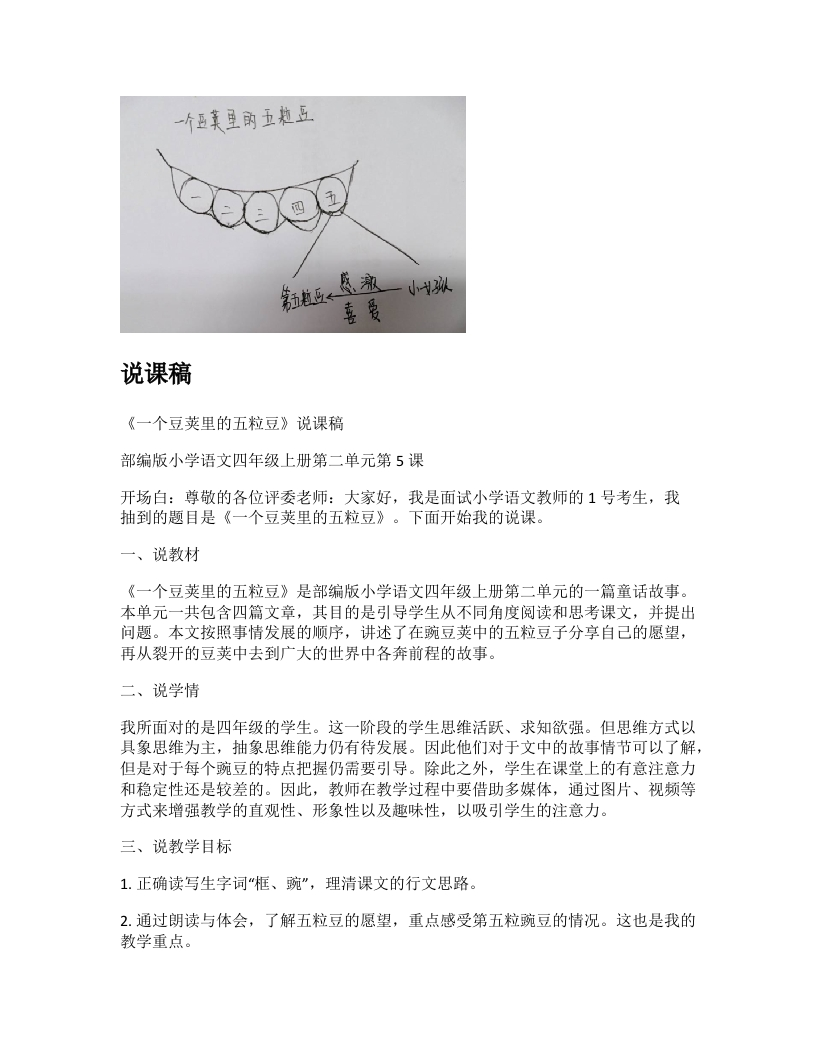 一个豆荚里的五粒豆
一 二 三 四 五
感激
第五粒豆 小女孩
喜爱
说课稿
《一个豆荚里的五粒豆》说课稿
部编版小学语文四年级上册第二单元第 5 课
开场白：尊敬的各位评委老师：大家好，我是面试小学语文教师的 1 号考生，我
抽到的题目是《一个豆荚里的五粒豆》。下面开始我的说课。
一、说教材
《一个豆荚里的五粒豆》是部编版小学语文四年级上册第二单元的一篇童话故事。
本单元一共包含四篇文章，其目的是引导学生从不同角度阅读和思考课文，并提出
问题。本文按照事情发展的顺序，讲述了在豌豆荚中的五粒豆子分享自己的愿望，
再从裂开的豆荚中去到广大的世界中各奔前程的故事。
二、说学情
我所面对的是四年级的学生。这一阶段的学生思维活跃、求知欲强。但思维方式以
具象思维为主，抽象思维能力仍有待发展。因此他们对于文中的故事情节可以了解，
但是对于每个豌豆的特点把握仍需要引导。除此之外，学生在课堂上的有意注意力
和稳定性还是较差的。因此，教师在教学过程中要借助多媒体，通过图片、视频等
方式来增强教学的直观性、形象性以及趣味性，以吸引学生的注意力。
三、说教学目标
1. 正确读写生字词“框、豌”，理清课文的行文思路。
2. 通过朗读与体会，了解五粒豆的愿望，重点感受第五粒豌豆的情况。这也是我的
教学重点。